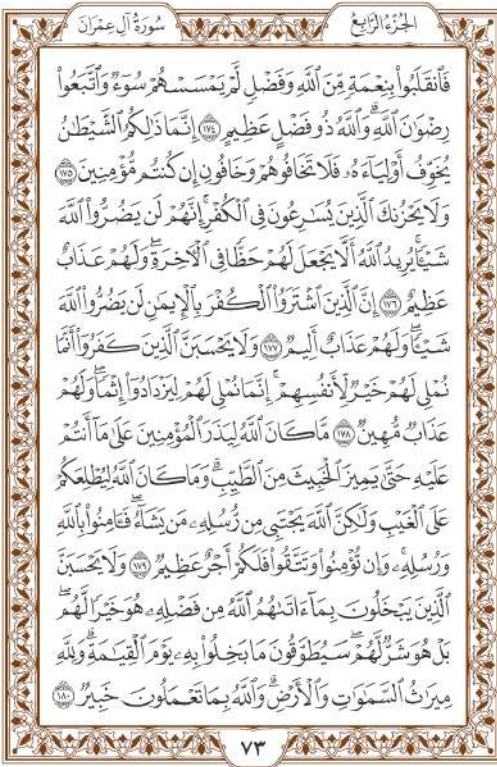 سُورَةُ آلِ عِمْرَانَ
الجُزْءُ الرَّابِعُ
فَٱنقَلَبُواْ بِنِعْمَةٍ مِّنَ ٱللَّهِ وَفَضْلٍ لَّمْ يَمْسَسْهُمْ سُوٓءٌ وَٱتَّبَعُواْ
رِضْوَٰنَ ٱللَّهِۗ وَٱللَّهُ ذُو فَضْلٍ عَظِيمٍ ١٧٤ إِنَّمَا ذَٰلِكُمُ ٱلشَّيْطَٰنُ
يُخَوِّفُ أَوْلِيَآءَهُۥ فَلَا تَخَافُوهُمْ وَخَافُونِ إِن كُنتُم مُّؤْمِنِينَ ١٧٥
وَلَا يَحْزُنكَ ٱلَّذِينَ يُسَٰرِعُونَ فِى ٱلْكُفْرِۚ إِنَّهُمْ لَن يَضُرُّواْ ٱللَّهَ
شَيْـًٔاۗ يُرِيدُ ٱللَّهُ أَلَّا يَجْعَلَ لَهُمْ حَظًّا فِى ٱلْأَخِرَةِۖ وَلَهُمْ عَذَابٌ
عَظِيمٌ ١٧٦ إِنَّ ٱلَّذِينَ ٱشْتَرَوُاْ ٱلْكُفْرَ بِٱلْإِيمَٰنِ لَن يَضُرُّواْ ٱللَّهَ
شَيْـًٔاۖ وَلَهُمْ عَذَابٌ أَلِيمٌ ١٧٧ وَلَا يَحْسَبَنَّ ٱلَّذِينَ كَفَرُوٓاْ أَنَّمَا
نُمْلِى لَهُمْ خَيْرٌ لِّأَنفُسِهِمْۚ إِنَّمَا نُمْلِى لَهُمْ لِيَزْدَادُوٓاْ إِثْمًاۖ وَلَهُمْ
عَذَابٌ مُّهِينٌ ١٧٨ مَّا كَانَ ٱللَّهُ لِيَذَرَ ٱلْمُؤْمِنِينَ عَلَىٰ مَآ أَنتُمْ
عَلَيْهِ حَتَّىٰ يَمِيزَ ٱلْخَبِيثَ مِنَ ٱلطَّيِّبِۗ وَمَا كَانَ ٱللَّهُ لِيُطْلِعَكُمْ
عَلَى ٱلْغَيْبِ وَلَٰكِنَّ ٱللَّهَ يَجْتَبِى مِن رُّسُلِهِۦ مَن يَشَآءُۖ فَـَٔامِنُواْ بِٱللَّهِ
وَرُسُلِهِۦۚ وَإِن تُؤْمِنُواْ وَتَتَّقُواْ فَلَكُمْ أَجْرٌ عَظِيمٌ ١٧٩ وَلَا يَحْسَبَنَّ
ٱلَّذِينَ يَبْخَلُونَ بِمَآ ءَاتَىٰهُمُ ٱللَّهُ مِن فَضْلِهِۦ هُوَ خَيْرًا لَّهُمۖ
بَلْ هُوَ شَرٌّ لَّهُمْۖ سَيُطَوَّقُونَ مَا بَخِلُواْ بِهِۦ يَوْمَ ٱلْقِيَٰمَةِۗ وَلِلَّهِ
مِيرَٰثُ ٱلسَّمَٰوَٰتِ وَٱلْأَرْضِۗ وَٱللَّهُ بِمَا تَعْمَلُونَ خَبِيرٌ ١٨٠
٧٣